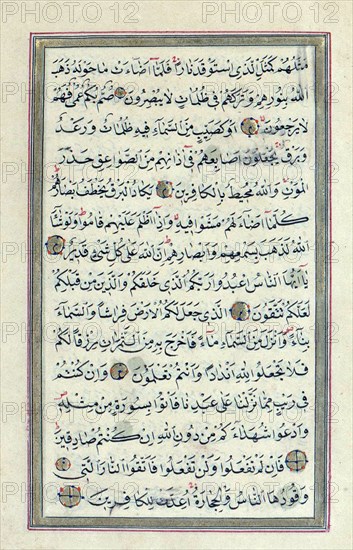 مَثَلُهُمْ كَمَثَلِ الَّذِى اسْتَوْقَدَ نَارًا فَلَمَّا اَضَاءَتْ مَاحَوْلَهُ ذَهَبَ
اللهُ بِنُورِهِمْ وَتَرَكَهُمْ فِى ظُلُمَاتٍ لَا يُبْصِرُونَ صُمٌّ بُكْمٌ عُمْىٌ فَهُمْ
لَا يَرْجِعُونَ اَوْ كَصَيِّبٍ مِنَ السَّمَاءِ فِيهِ ظُلُمَاتٌ وَرَعْدٌ
وَبَرْقٌ يَجْعَلُونَ اَصَابِعَهُمْ فِى اٰذَانِهِمْ مِنَ الصَّوَاعِقِ حَذَرَ
الْمَوْتِ وَاللهُ مُحِيطٌ بِالْكَافِرِينَ يَكَادُ الْبَرْقُ يَخْطَفُ اَبْصَارَهُمْ
كُلَّمَا اَضَاءَ لَهُمْ مَشَوْا فِيهِ وَاِذَا اَظْلَمَ عَلَيْهِمْ قَامُوا وَلَوْ شَاءَ
اللهُ لَذَهَبَ بِسَمْعِهِمْ وَاَبْصَارِهِمْ اِنَّ اللهَ عَلٰى كُلِّ شَىْءٍ قَدِيرٌ
يَا اَيُّهَا النَّاسُ اعْبُدُوا رَبَّكُمُ الَّذِى خَلَقَكُمْ وَالَّذِينَ مِنْ قَبْلِكُمْ
لَعَلَّكُمْ تَتَّقُونَ الَّذِى جَعَلَ لَكُمُ الْاَرْضَ فِرَاشًا وَالسَّمَاءَ
بِنَاءً وَاَنْزَلَ مِنَ السَّمَاءِ مَاءً فَاَخْرَجَ بِهِ مِنَ الثَّمَرَاتِ رِزْقًا لَكُمْ
فَلَا تَجْعَلُوا لِلّٰهِ اَنْدَادًا وَاَنْتُمْ تَعْلَمُونَ وَاِنْ كُنْتُمْ
فِى رَيْبٍ مِمَّا نَزَّلْنَا عَلٰى عَبْدِنَا فَأْتُوا بِسُورَةٍ مِنْ مِثْلِهِ
وَادْعُوا شُهَدَاءَكُمْ مِنْ دُونِ اللهِ اِنْ كُنْتُمْ صَادِقِينَ
فَاِنْ لَمْ تَفْعَلُوا وَلَنْ تَفْعَلُوا فَاتَّقُوا النَّارَ الَّتِى
وَقُودُهَا النَّاسُ وَالْحِجَارَةُ اُعِدَّتْ لِلْكَافِرِينَ